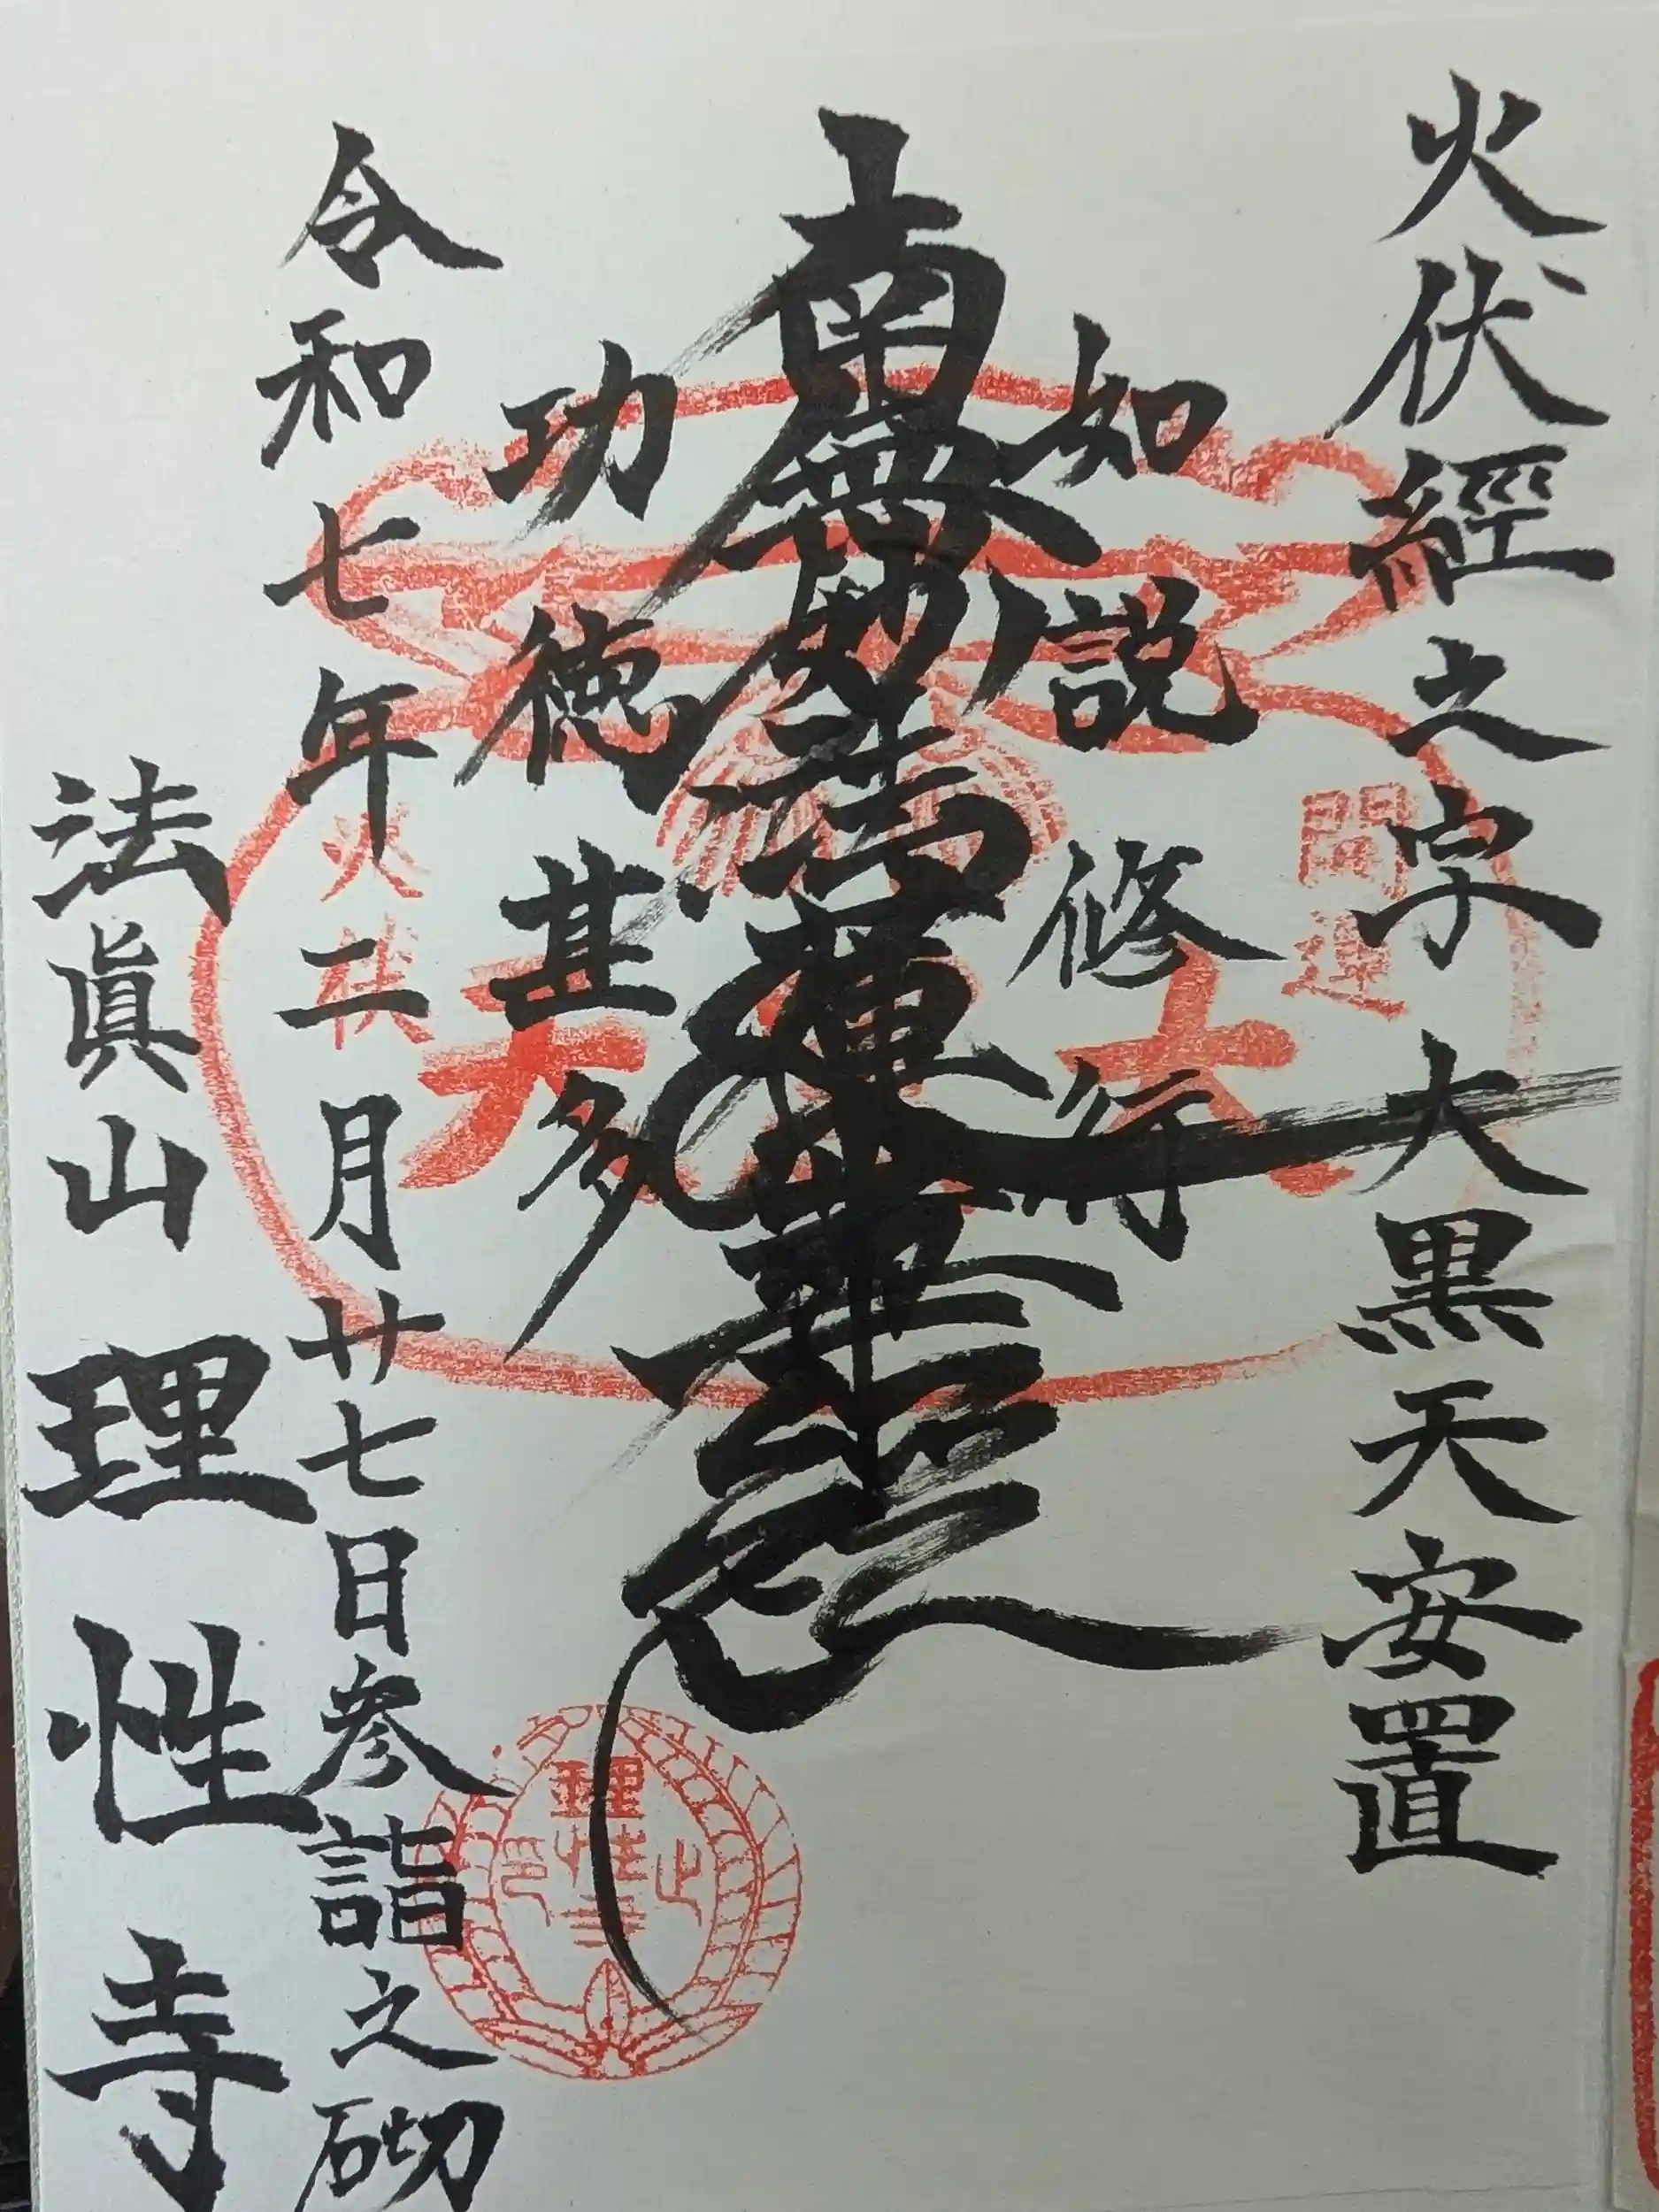 火伏經之字大黒天安置
如説修行
南無妙法蓮華経
功徳甚多
令和七年二月廿七日参詣之砌
法眞山理性寺
開運
大黒天
火伏
理性寺